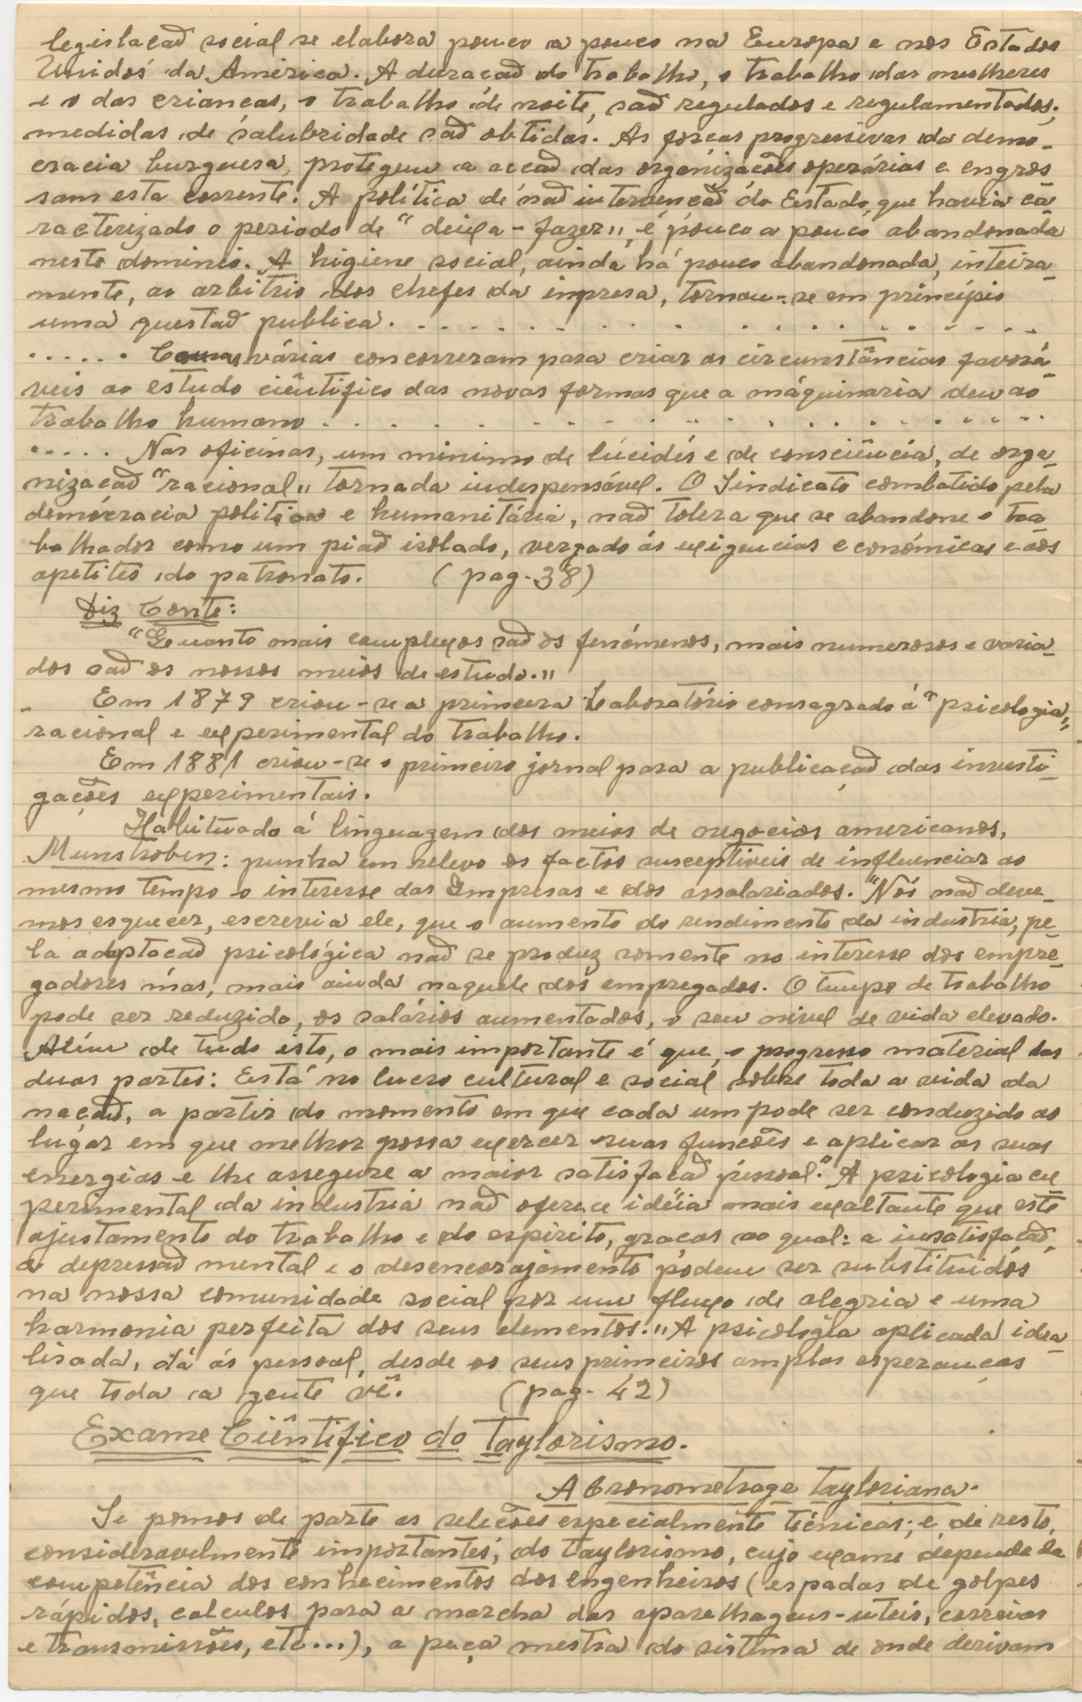 legislacaõ social se elabora pouco a pouco na Europa e nos Estados
Unidos da América. A duracaõ do trabalho, o trabalho das mulheres
e o das crianças, o trabalho de noite, saõ regulados e regulamentados;
medidas de salubridade saõ obtidas. As forças progressivas da demo-
cracia burguesa, protegem a accaõ das organizacões operárias e engros
sam esta corrente. A política de naõ intervencaõ do Estado, que havia ca
racterizado o periodo de "deixa-fazer", é pouco a pouco abandonada
neste dominio. A higiene social, ainda há pouco abandonada, inteira-
mente, ao arbitrio dos chefes da impresa, tornou-se em princípio
uma questaõ publica. . . . . . . . . . . . . . . . . . . .
. . . . . . Causas várias concorreram para criar as circunstâncias favorá-
veis ao estudo ciêntifico das novas formas que a máquinaria deu ao
trabalho humano . . . . . . . . . . . . . . . . . . .
. . . . . Nas oficinas, um minimo de lúcidês e de consciência, de orga-
nizacaõ "racional" tornada indespensável. O Sindicato combatido pela
democracia politica e humanitária, naõ tolera que se abandone o tra
balhador como um piaõ isolado, vergado ás exigencias económicas e aos
apetites do patronato. (pag. 38)
Diz Conte:
"Quanto mais complexos saõ os fenómenos, mais numerosos e varia-
dos saõ os nossos meios de estudo."
Em 1879 criou-se a primeira Laboratório consagrado á "psicologia"
racional e experimental do trabalho.
Em 1881 criou-se o primeiro jornal para a publicaçaõ das investi-
gações experimentais.
Habituado á linguagem dos meios de negocios americanos,
Munstroben: punha em relevo os factos susceptíveis de influenciar ao
mesmo tempo o interesse das Empresas e dos assalariados. "Nós naõ deve-
mos esquecer, escrevia ele, que o aumento do rendimento da industria, pe-
la adaptacaõ psicológica naõ se produz somente no interesse dos empre-
gadores más, mais ainda naquele dos empregados. O tempo de trabalho
pode ser reduzido, os salários aumentados, o seu nivel de vida elevado.
Além de tudo isto, o mais importante é que, o progresso material das
duas partes: Está no lucro cultural e social sobre toda a vida da
nacaõ, a partir do momento em que cada um pode ser conduzido ao
lugar em que melhor possa exercer suas funcões e aplicar as suas
energias e lhe assegure a maior satisfacaõ pessoal." A psicologia ex
perimental da industria naõ oferece idéia mais exaltante que este
ajustamento do trabalho e do espirito, graças ao qual: a insatisfacaõ,
a depressaõ mental e o desencorajamento podem ser substituidos
na nossa comunidade social por um fluxo de alegria e uma
harmonia perfeita dos seus elementos." A psicologia aplicada idea-
lisada, dá ás pessoal, desde os seus primeiros amplas esperanças
que toda a gente vê. (pag. 42)
Exame Ciêntifico do Taylorismo.
A Cronometrage tayloriana.
Se pomos de parte as selecões especialmente técnicas; e, de resto,
consideravelmente importantes, do taylorismo, cujo exame depende da
competência dos conhecimentos dos engenheiros (espadas de golpes
rápidos, calculos para a marcha das aparelhagens-uteis, correias
e transmissões, etc...), a peça mestra do sistema de onde derivam